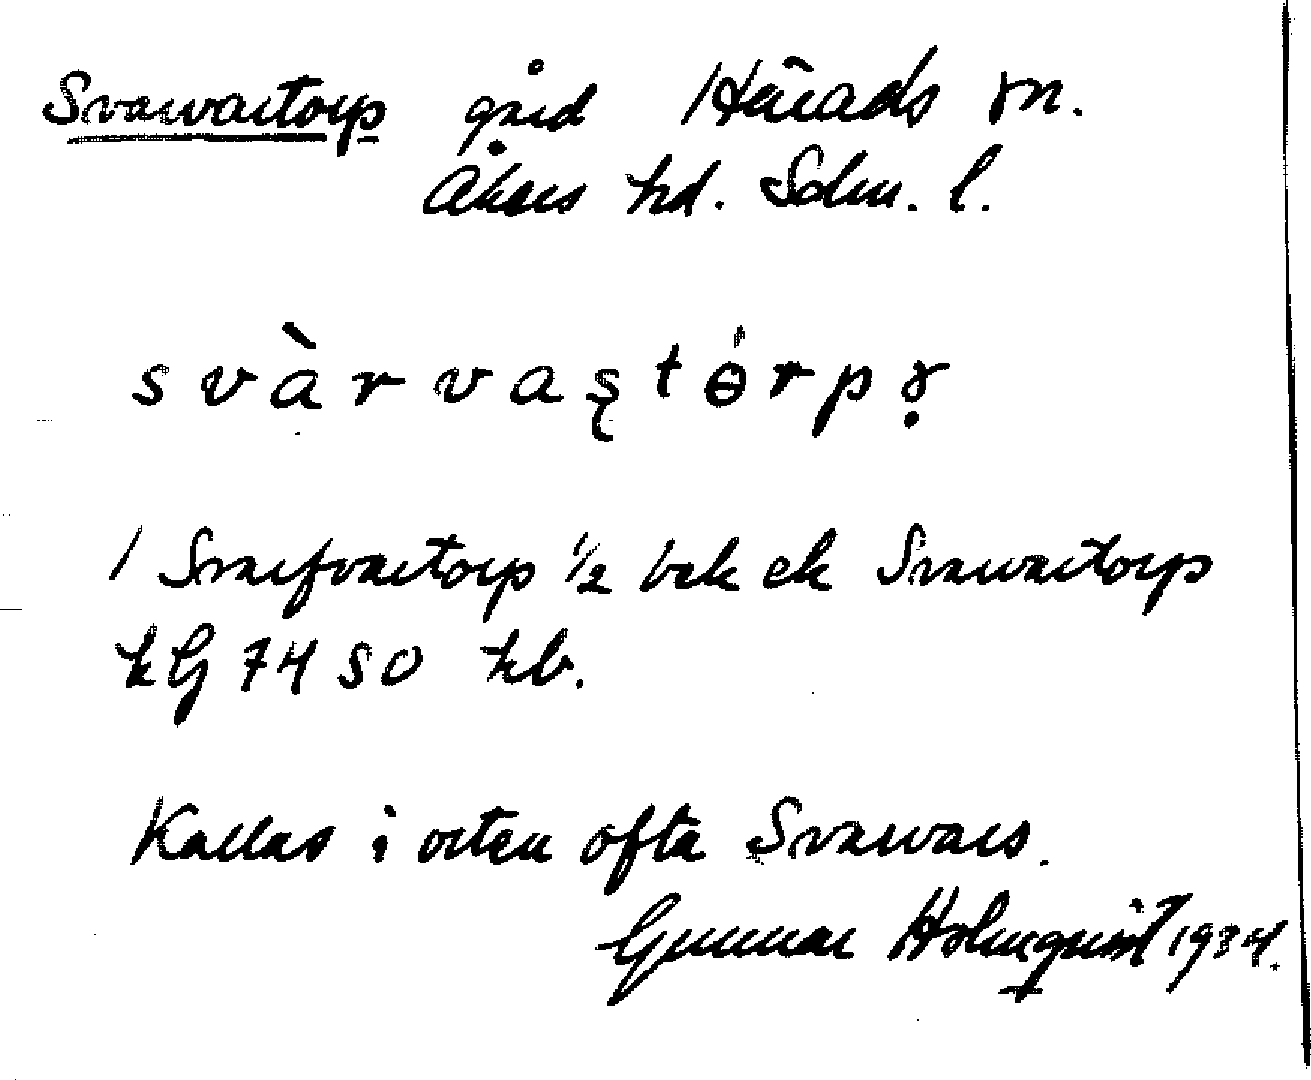 Svarvartorp gård Härads sn.
Åkers hd. Sdm. l.
s v à r v a ș t ɵ́ r p ɤ̣
1 Svarfvartorp 1/2 bek ek Svarvartorp
kG 7450 kb.
Kallas i orten ofta Svarvars.
Gunnar Holmquist 1934.